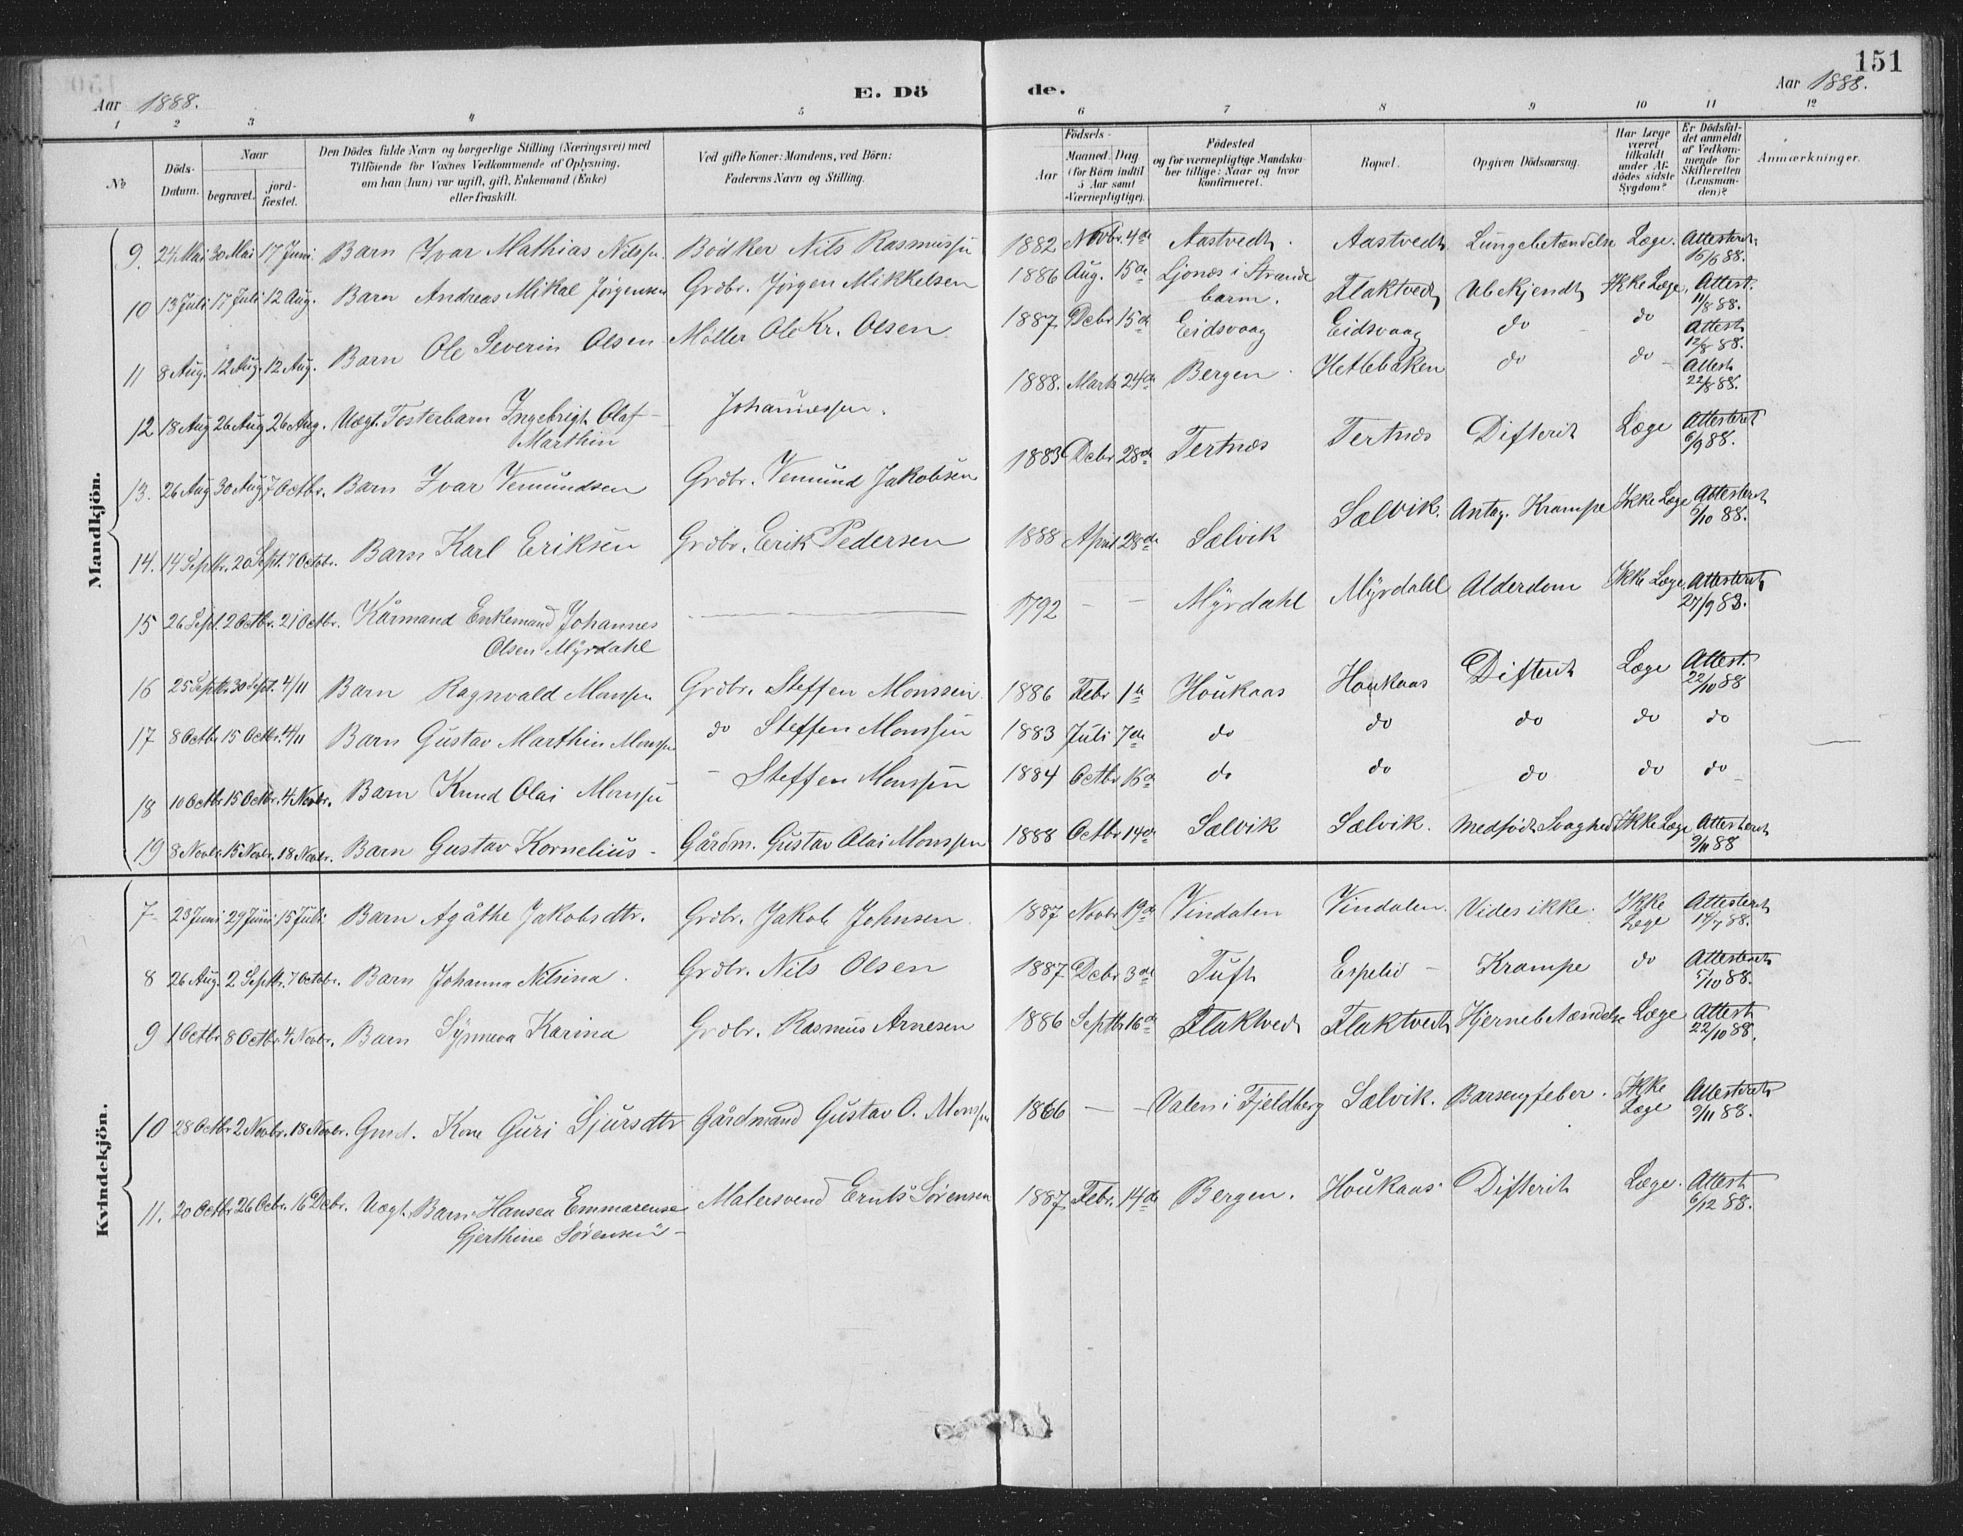 151
Aar 1888.
E. Dö
de.
Aar 1888.
1 2 3 4 5 6 7 8 9 10 11 12
No
Döds-Datum.
Naar
begravet.
jord-fæstet.
Den Dödes fulde Navn og borgerlige Stilling (Næringsvei) med
Tilföiende for Voxnes Vedkommende af Oplysning,
om han (hun) var ugift, gift, Enkemand (Enke)
eller fraskilt.
Ved gifte Koner: Mandens, ved Börn:
Faderens Navn og Stilling.
Födsels-
Aar
Maaned. Dag
(for Börn indtil
5 Aar samt
Værnepligtige).
Födested
og for værnepligtige Mandska-
ber tillige: Naar og hvor
konfirmeret.
Bopæl.
Opgiven Dödsaarsag.
Har Læge
været
tilkaldt
under Af-
dödes sidste
Sygdom?
Er Dödsfal-
det anmeldt
af Vedkom-
mende for
Skifteretten
(Lensman-
den)?
Anmærkninger.
Mandkjön.
9. 24 Mai 30 Mai 17 Juni Barn Ivar Mathias Nilssen. Bödker Nils Rasmussen 1882 Novbr. 4de Aastvedt. Aastvedt Lungebetændelse Læge. Attesteret 15/6 88.
10 13 Juli 17 Juli 12 Aug. Barn Andreas Mikal Jörgensen Grdbr. Jörgen Mikkelsen 1886 Aug. 15de Ljonæs i Strande
barm. Flaktvedt Ubekjendt Ikke Læge. Attest. 11/8 88.
11 8 Aug. 12 Aug. 12 Aug. Barn Ole Severin Olsen Möller Ole Kr. Olsen 1887 Debr 15de Eidsvaag Eidsvaag do do Attest 12/8 88.
12 18 Aug 26 Aug 26 Aug. Uægt. Fosterbarn Ingebrigt Olaf
Marthin Johannessen. 1888. Marts 24de Bergen. Hetlebakken do do Attest 22/8 88.
13. 26 Aug 30 Aug 7 Octbr. Barn Ivar Vemundsen Grdbr. Vemund Jakobsen 1883 Debr 28de Tertnæs Tertnæs Difterit Læge Attesteret 6/9 88.
14. 14 Septbr. 20 Sept. 7 Octobr. Barn Karl Eriksen Grdbr. Erik Pedersen 1888 April 28de Sælvik Sælvik. Antag. Krampe Ikke Læge Attesteret 5/10 88.
15 26 Sept. 2 Octbr. 21 Octbr. Kårmand Enkemand Johannes
Olsen Myrdahl 1792 Myrdahl Myrdahl Alderdom Ikke Læge Attesteret 27/9 88.
16 25 Septbr 30 Sept. 4/11 Barn Ragnvald Monssen Grdbr. Steffen Monssen 1886 Febr 1te Houkaas Houkaas Difterit Læge Attest. 22/10 88
17 8 Octbr 15 Octbr. 4/11 Barn Gustav Marthin Monssen do Steffen Monssen 1883 Juli 7de do do do do do
18 10 Octbr 15 Octbr. 4 Novbr. Barn Knud Olai Monssen Steffen Monssen 1884 Octbr 16de do do do do do
19 8 Novbr 15 Novbr. 18 Novbr. Barn Gustav Kornelius Gårdm. Gustav Olai Monssen 1888 Octbr 14de Sælvik Sælvik. Medfødt Svaghed Ikke Læge Attesteret 9/11 88
Kvindekjön.
7 23 Juni 29 Juni 15 Juli Barn Agåthe Jakobsdtr. Grdbr. Jakob Johnsen 1887 Novbr 19de Vindalen Vindalen. Vides ikke. Ikke
Læge Attesteret 14/7 88.
8 26 Aug. 2 Septbr. 7 Octobr. Barn Johanna Nilsina. Grdbr. Nils Olsen 1887 Debr 3de Tuft Espelid Krampe do Attesteret 5/10 88.
9 1 Octbr 8 Octbr. 4 Novbr. Barn Synneva Karina Grdbr. Rasmus Arnesen 1886 Septbr 16de Flaktvedt Flaktvedt Hjernebetændelse Læge Attest 22/10 88.
10 28 Octbr 2 Novbr. 18 Novbr. Gmd. Kone Guri Sjursdtr Gårdmand Gustav O. Monssen 1866 Valen i Fjeldberg Sælvik. Barsengfeber. Ikke
Læge Attesteret 9/11 88.
11. 20 Octbr 26 Octbr. 16 Debr. Uægt. Barn Hansea Emmarense
Gjerthine Sörensen Malersvend Ernts Sörensen 1887 Febr. 14de Bergen. Houkaas Difterit Læge. Attest 6/12 88.